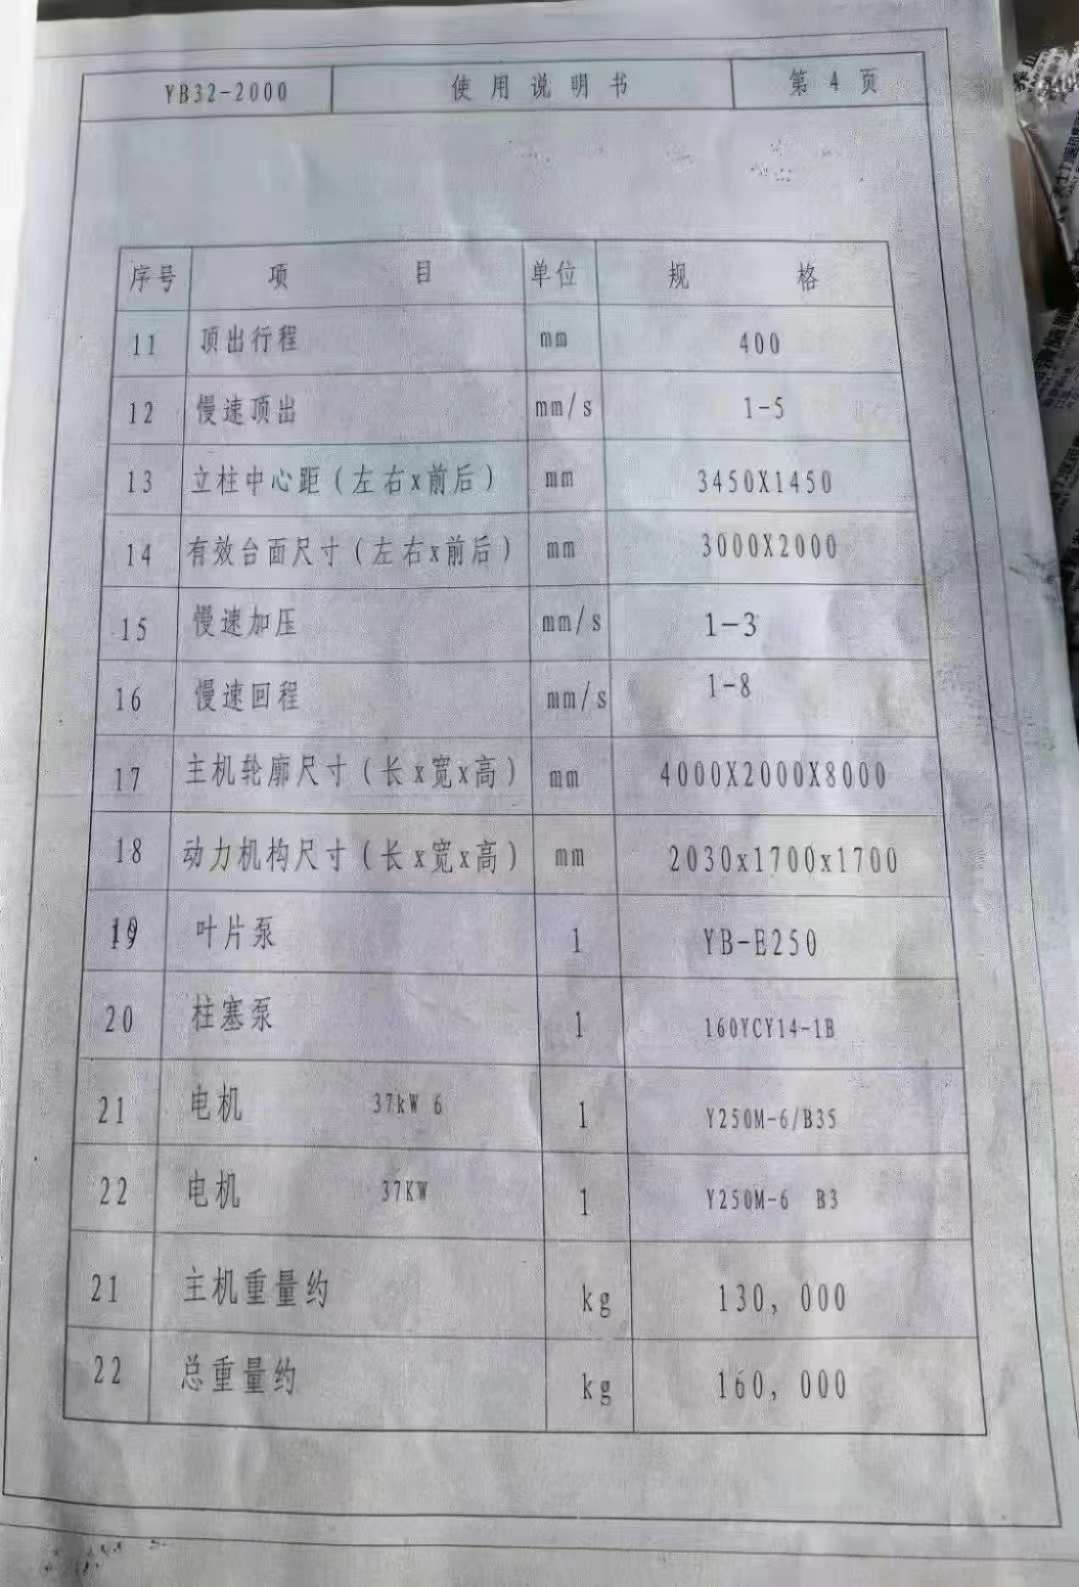 YB32-2000 使用说明书 第4页
序号 项目 单位 规格
11 顶出行程 mm 400
12 慢速顶出 mm/s 1-5
13 立柱中心距(左右x前后) mm 3450X1450
14 有效台面尺寸(左右x前后) mm 3000X2000
15 慢速加压 mm/s 1-3
16 慢速回程 mm/s 1-8
17 主机轮廓尺寸(长x宽x高) mm 4000X2000X8000
18 动力机构尺寸(长x宽x高) mm 2030x1700x1700
19 叶片泵 1 YB-E250
20 柱塞泵 1 160YCY14-1B
21 电机 37kW 6 1 Y250M-6/B35
22 电机 37KW 1 Y250M-6 B3
21 主机重量约 kg 130,000
22 总重量约 kg 160,000